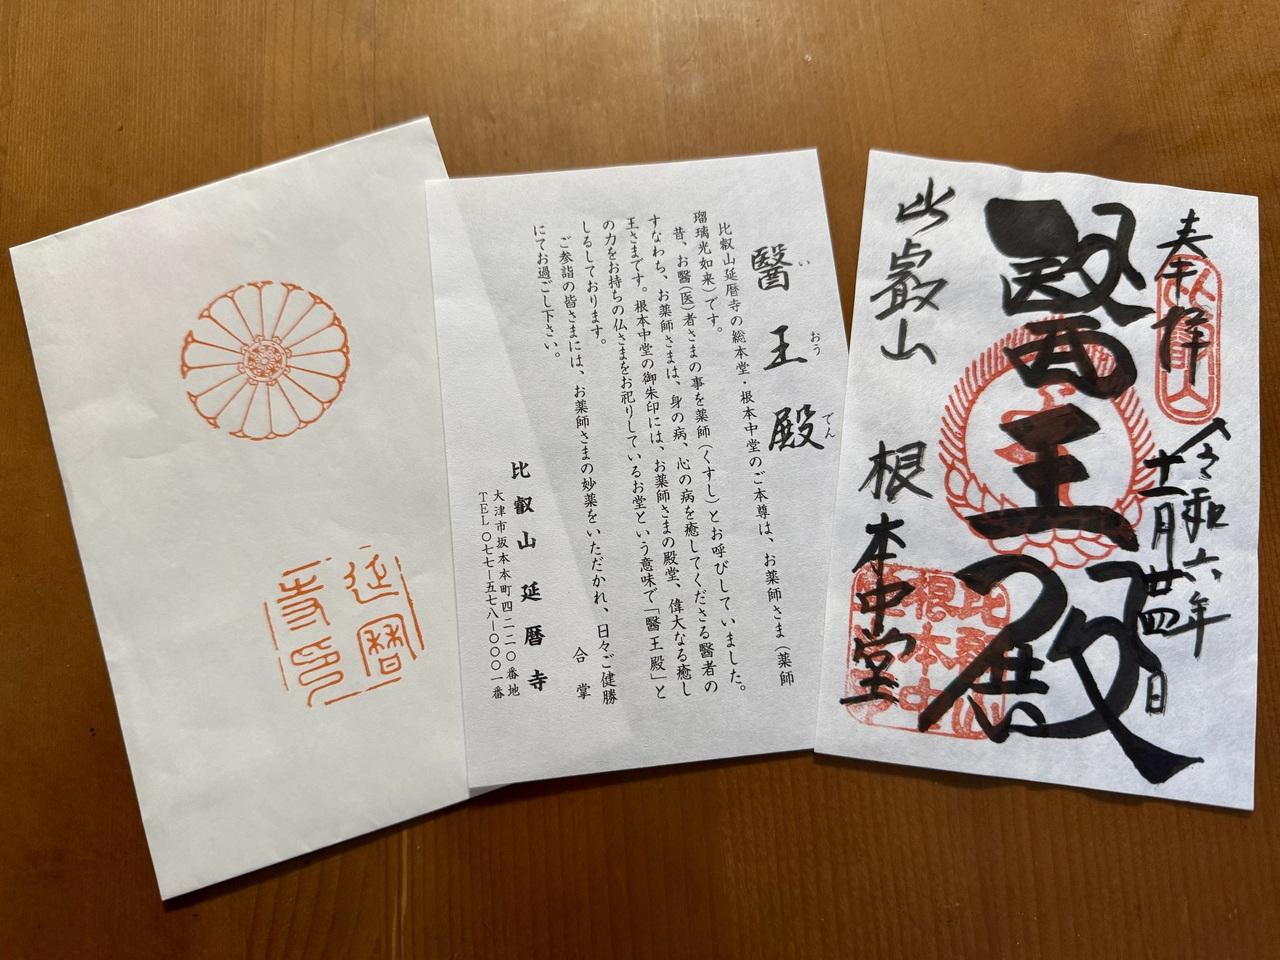 延暦
寺印
醫王殿
いおうでん
比叡山延暦寺の総本堂・根本中堂のご本尊は、お薬師さま（薬師
瑠璃光如来）です。
昔、お醫（医）者さまの事を薬師（くすし）とお呼びしていました。
すなわち、お薬師さまは、身の病、心の病を癒してくださる醫者の
王さまです。根本中堂の御朱印には、お薬師さまの殿堂、偉大なる癒し
の力をお持ちの仏さまをお祀りしているお堂という意味で「醫王殿」と
しるしております。
ご参詣の皆さまには、お薬師さまの妙薬をいただかれ、日々ご健勝
にてお過ごし下さい。
合掌
比叡山延暦寺
大津市坂本本町四二二〇番地
TEL〇七七―五七八―〇〇〇一番
奉拝
令和六年
十一月廿四日
醫王殿
比叡山 根本中堂